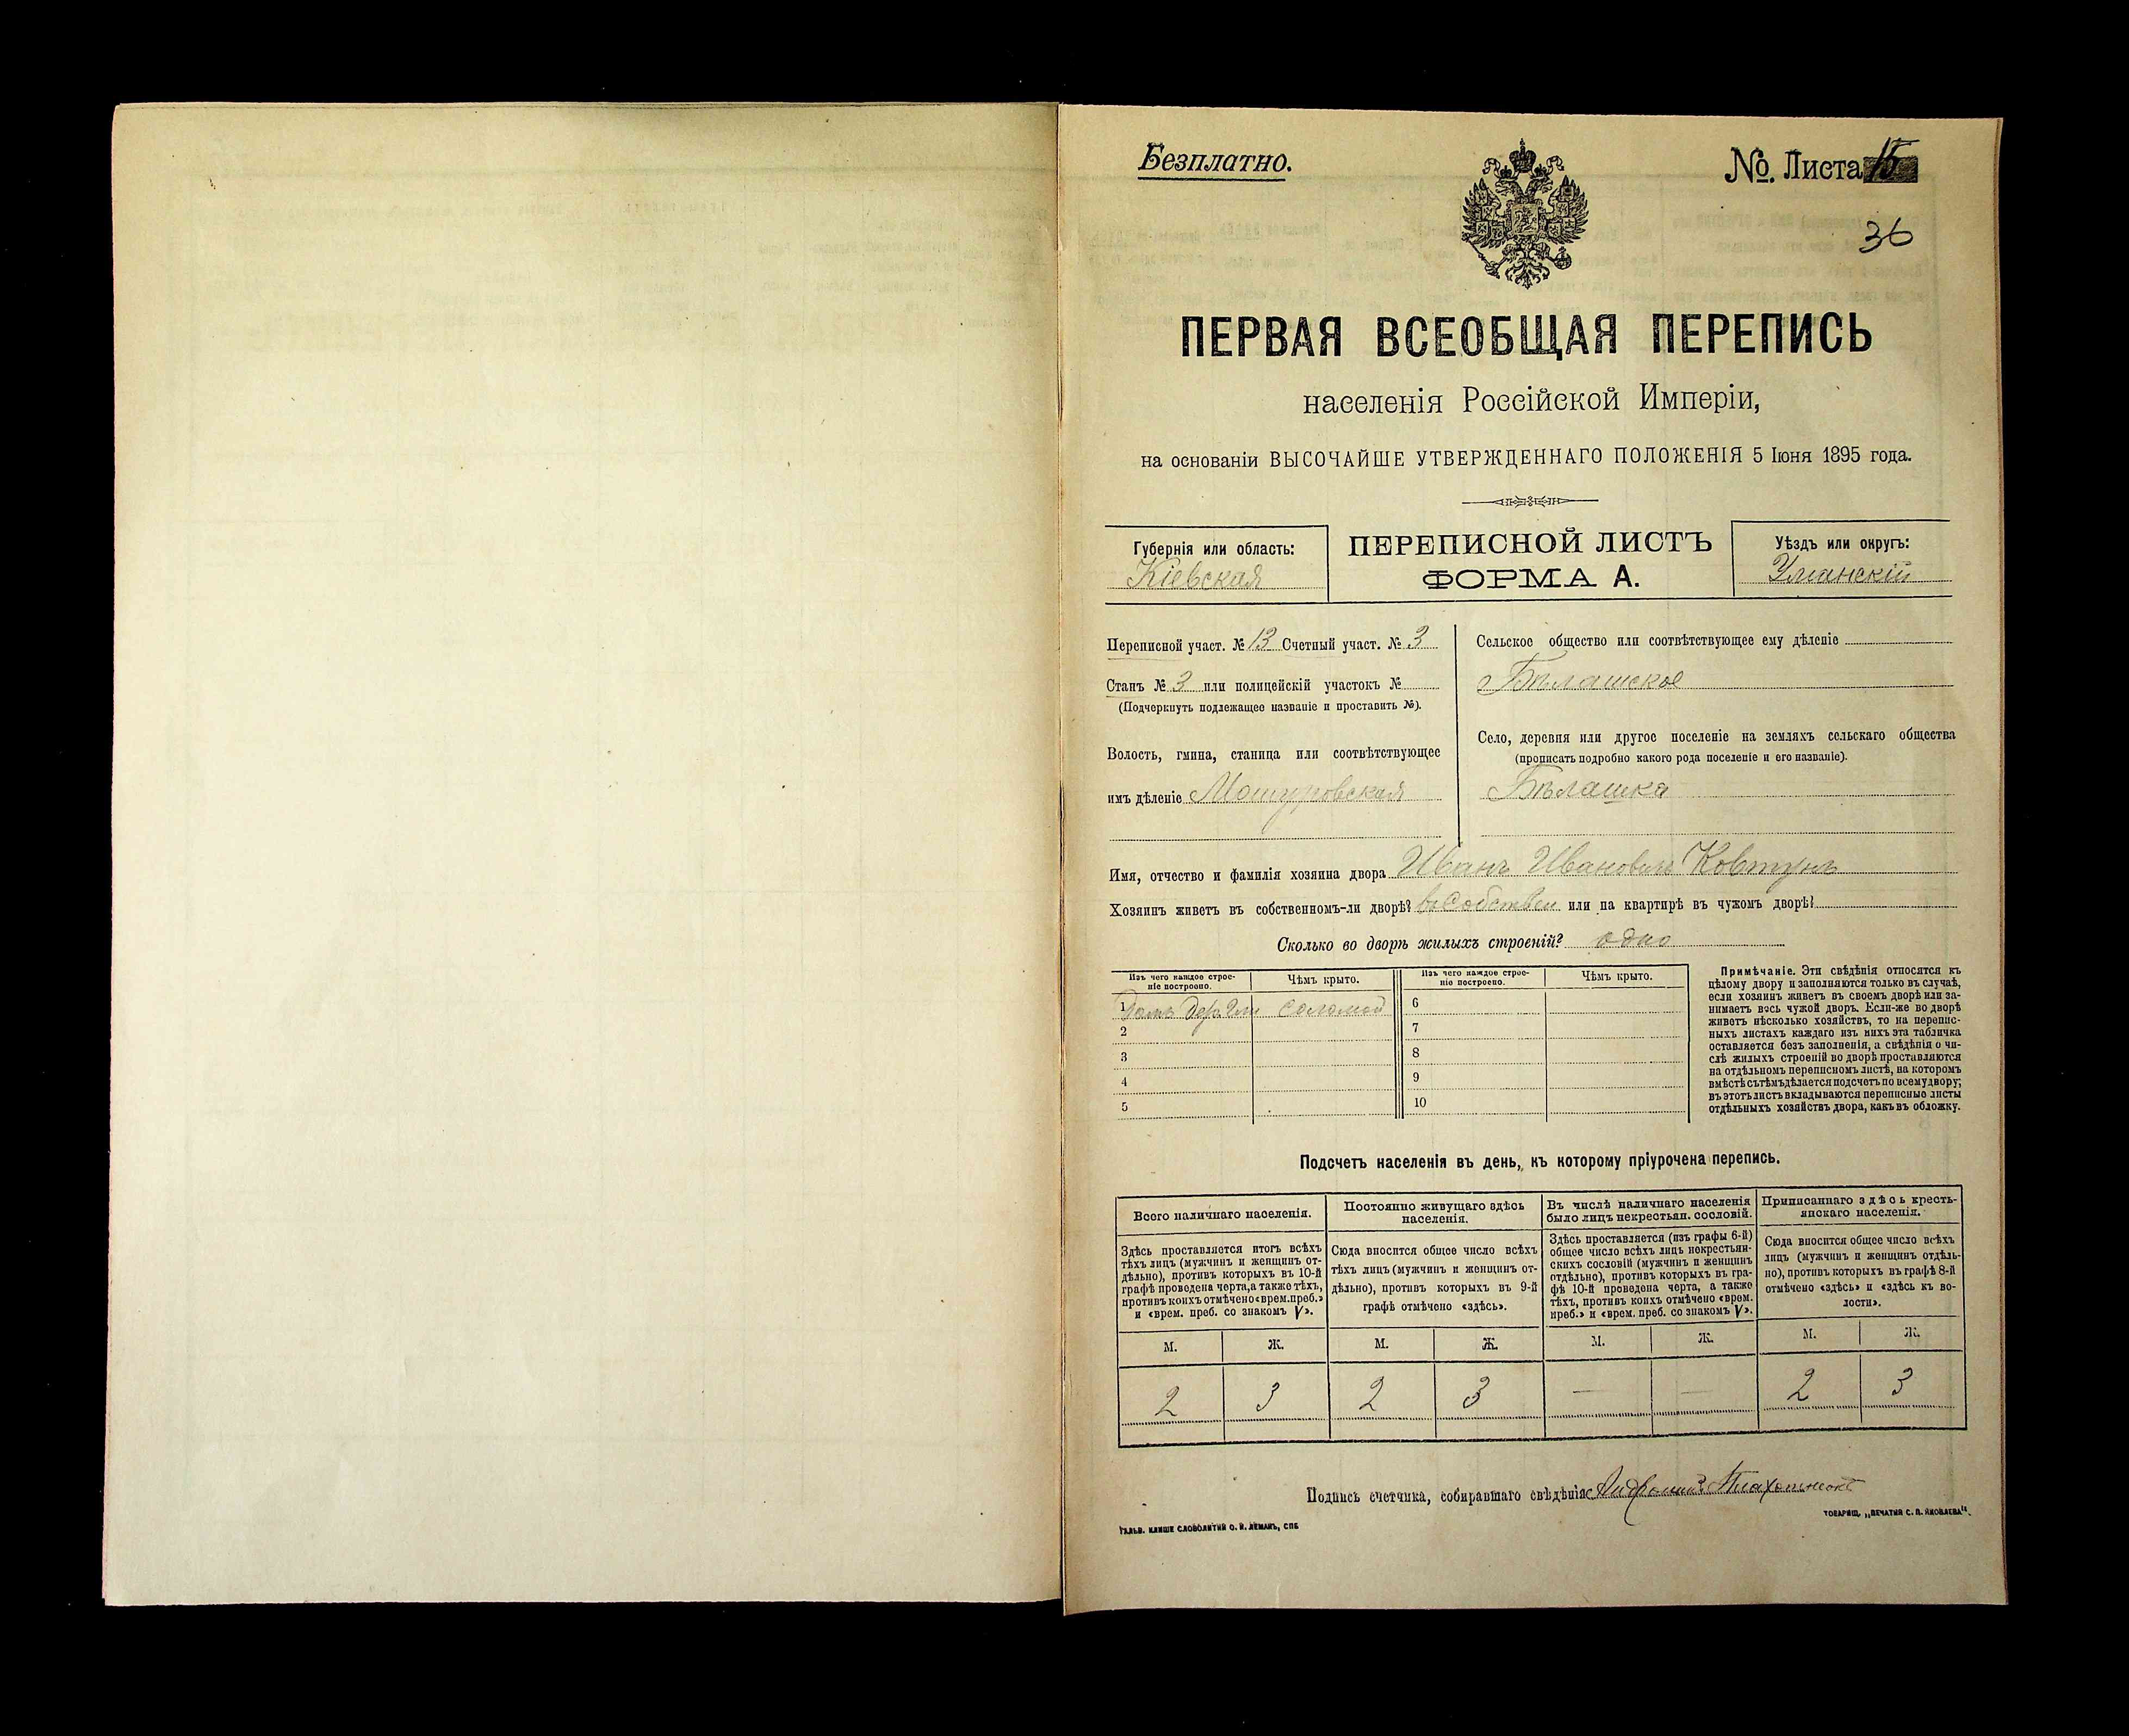 Безплатно.
№. Листа 15
36
ПЕРВАЯ ВСЕОБЩАЯ ПЕРЕПИСЬ
населенія Россійской Имперіи,
на основаніи ВЫСОЧАЙШЕ УТВЕРЖДЕННАГО ПОЛОЖЕНІЯ 5 Іюня 1895 года.
Губернія или область:
Кіевская
ПЕРЕПИСНОЙ ЛИСТЪ
ФОРМА А.
Уѣздъ или округъ:
Уманскій
Переписной участ. № 13 Счетный участ. № 3
Станъ № 3 или полицейскій участокъ №
(Подчеркнуть подлежащее названіе и проставить №).
Волость, гмина, станица или соотвѣтствующее
имъ дѣленіе Мошуровская
Сельское общество или соотвѣтствующее ему дѣленіе
Бѣлашское
Село, деревня или другое поселеніе на земляхъ сельскаго общества
(прописать подробно какого рода поселеніе и его названіе).
Бѣлашка
Имя, отчество и фамилія хозяина двора Иванъ Ивановъ Ковтунъ
Хозяинъ живетъ въ собственномъ-ли дворѣ? въ Собствен или на квартирѣ въ чужомъ дворѣ?
Сколько во дворѣ жилыхъ строеній? одно
Изъ чего каждое строе-
ніе построено.
Чѣмъ крыто.
1 Домъ дер. соломой
2
3
4
5
Изъ чего каждое строе-
ніе построено.
Чѣмъ крыто.
6
7
8
9
10
Примѣчаніе. Эти свѣдѣнія относятся къ
цѣлому двору и заполняются только въ случаѣ,
если хозяинъ живетъ въ своемъ дворѣ или за-
нимаетъ весь чужой дворъ. Если-же во дворѣ
живетъ нѣсколько хозяйствъ, то на перепис-
ныхъ листахъ каждаго изъ нихъ эта табличка
оставляется безъ заполненія, а свѣдѣнія о чи-
слѣ жилыхъ строеній во дворѣ проставляются
на отдѣльномъ переписномъ листѣ, на которомъ
вмѣстѣ съ тѣмъ дѣлается подсчетъ по всему двору;
въ этотъ листъ вкладываются переписные листы
отдѣльныхъ хозяйствъ двора, какъ въ обложку.
Подсчетъ населенія въ день, къ которому пріурочена перепись.
Всего наличнаго населенія.
Здѣсь проставляется итогъ всѣхъ
тѣхъ лицъ (мужчинъ и женщинъ от-
дѣльно), противъ которыхъ въ 10-й
графѣ проведена черта, а также тѣхъ,
противъ коихъ отмѣчено «врем. преб.»
и «врем. преб. со знакомъ V».
М. Ж.
2 3
Постоянно живущаго здѣсь
населенія.
Сюда вносится общее число всѣхъ
тѣхъ лицъ (мужчинъ и женщинъ от-
дѣльно), противъ которыхъ въ 9-й
графѣ отмѣчено «здѣсь».
М. Ж.
2 3
Въ числѣ наличнаго населенія
было лицъ некрестьян. сословій.
Здѣсь проставляется (изъ графы 6-й)
общее число всѣхъ лицъ некрестьян-
скихъ сословій (мужчинъ и женщинъ
отдѣльно), противъ которыхъ въ гра-
фѣ 10-й проведена черта, а также
тѣхъ, противъ коихъ отмѣчено «врем.
преб.» и «врем. преб. со знакомъ V».
М. Ж.
— —
Приписаннаго здѣсь кресть-
янскаго населенія.
Сюда вносится общее число всѣхъ
лицъ (мужчинъ и женщинъ отдѣль-
но), противъ которыхъ въ графѣ 8-й
отмѣчено «здѣсь» и «здѣсь къ во-
лости».
М. Ж.
2 3
Подпись счетчика, собиравшаго свѣдѣнія:
ГАЛЬВ. КЛИШЕ СЛОВОЛИТНИ О. И. ЛЕМАНЪ, СПБ.
ТОВАРИЩ. „ПЕЧАТНЯ С. П. ЯКОВЛЕВА".